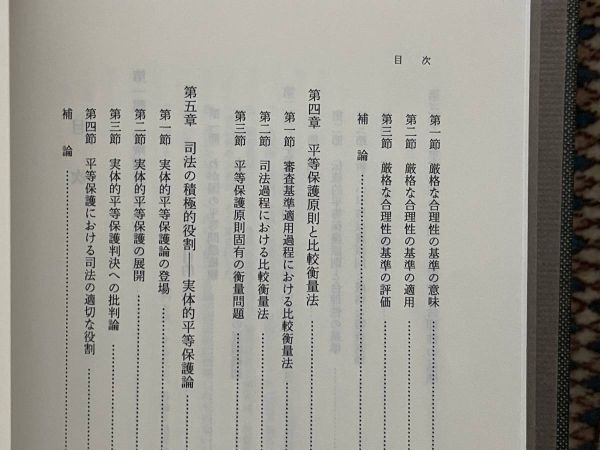 目次
第一節　厳格な合理性の基準の意味
第二節　厳格な合理性の基準の適用
第三節　厳格な合理性の基準の評価
補論
第四章　平等保護原則と比較衡量法
第一節　審査基準適用過程における比較衡量法
第二節　司法過程における比較衡量法
第三節　平等保護原則固有の衡量問題
第五章　司法の積極的役割──実体的平等保護論
第一節　実体的平等保護論の登場
第二節　実体的平等保護の展開
第三節　実体的平等保護判決への批判論
第四節　平等保護における司法の適切な役割
補論